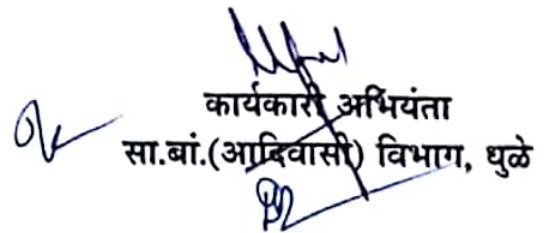 कार्यकारी अभियंता
सा.बां.(आदिवासी) विभाग, धुळे